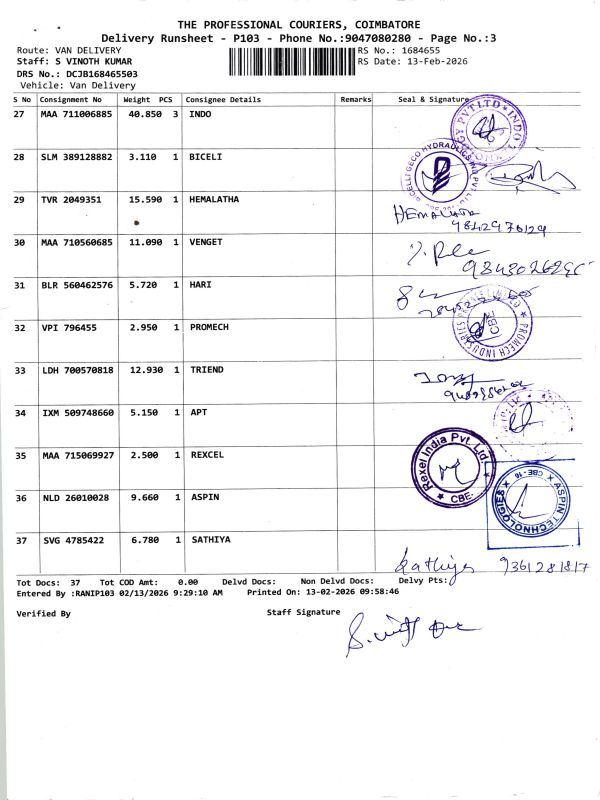 THE PROFESSIONAL COURIERS, COIMBATORE
Delivery Runsheet - P103 - Phone No.:9047080280 - Page No.:3
Route: VAN DELIVERY
RS No.: 1684655
Staff: S VINOTH KUMAR
RS Date: 13-Feb-2026
DRS No.: DCJB168465503
Vehicle: Van Delivery
S No Consignment No Weight PCS Consignee Details Remarks Seal & Signature
27 MAA 711006885 40.850 3 INDO
28 SLM 389128882 3.110 1 BICELI
29 TVR 2049351 15.590 1 HEMALATHA
HEMALATHA
9842976129
30 MAA 710560685 11.090 1 VENGET
31 BLR 560462576 5.720 1 HARI
32 VPI 796455 2.950 1 PROMECH
PROMECH INDUSTRIES PRIVATE LIMITED
CBE
33 LDH 700570818 12.930 1 TRIEND
34 IXM 509748660 5.150 1 APT
35 MAA 715069927 2.500 1 REXCEL
Rexel India Pvt. Ltd
CBE-
36 NLD 26010028 9.660 1 ASPIN
ASPIN TECHNOLOGIES
CBE-16
37 SVG 4785422 6.780 1 SATHIYA
Sathiya 9361281817
Tot Docs: 37 Tot COD Amt: 0.00 Delvd Docs: Non Delvd Docs: Delvy Pts:
Entered By :RANIP103 02/13/2026 9:29:10 AM Printed On: 13-02-2026 09:58:46
Verified By
Staff Signature